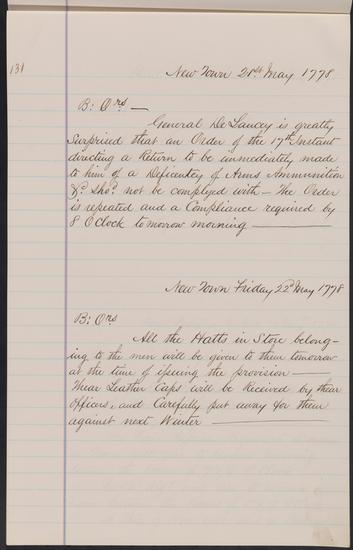 131
New Town 21st May 1778
B: Ors —
General De Lancey is greatly
Surprised that an Order of the 17th Instant
directing a Return to be immediately made
to him of a Deficentcy of Arms Ammunition
&c. shod. not be complyed with — The Order
is repeated and a Compliance required by
8 OClock tomorrow morning —
New Town Friday 22d May 1778
B: Ors
All the Hatts in Store belong-
ing to the men will be given to them tomorrow
at the time of issuing the provision —
Their Leather Caps will be Received by their
officers, and Carefully put away for them
against next Winter —